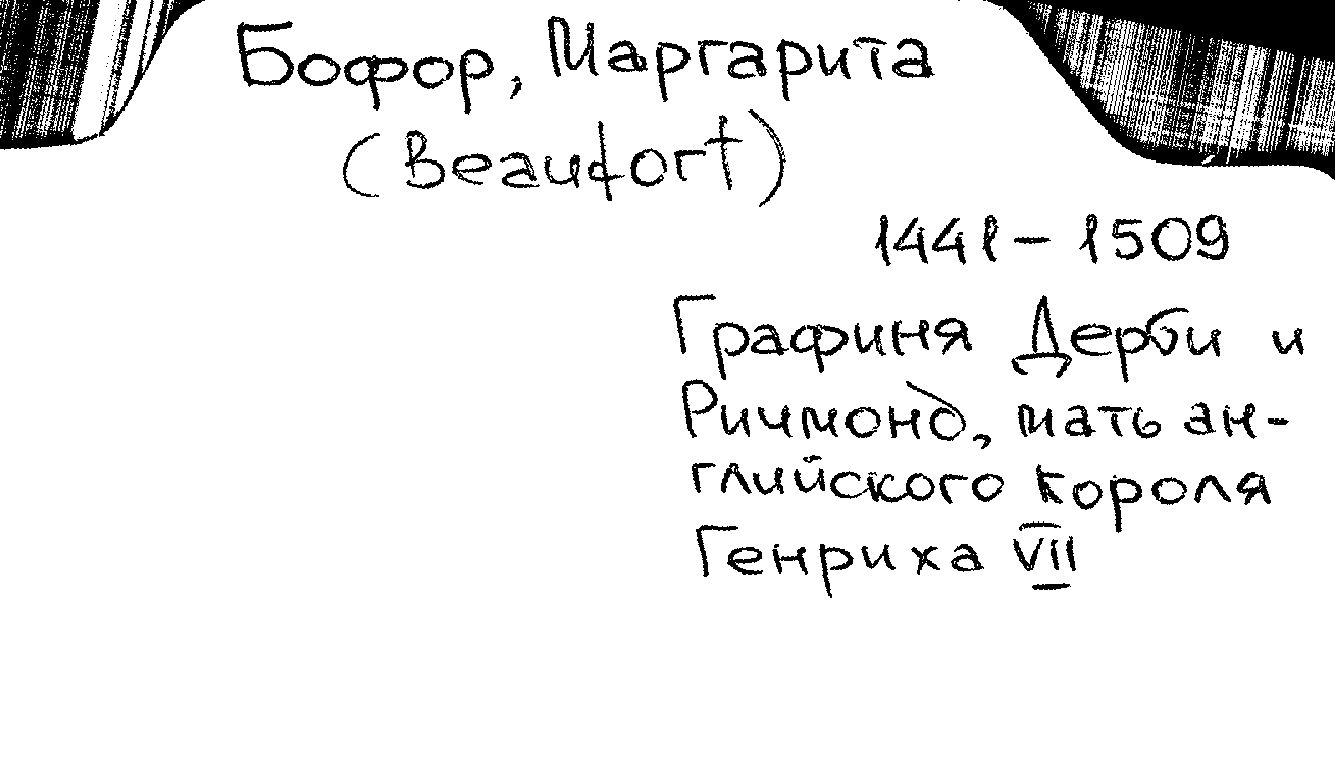 Бофор, Маргарита
(Beaufort)
1441 – 1509
Графиня Дерби и
Ричмонд, мать ан-
глийского короля
Генриха VII